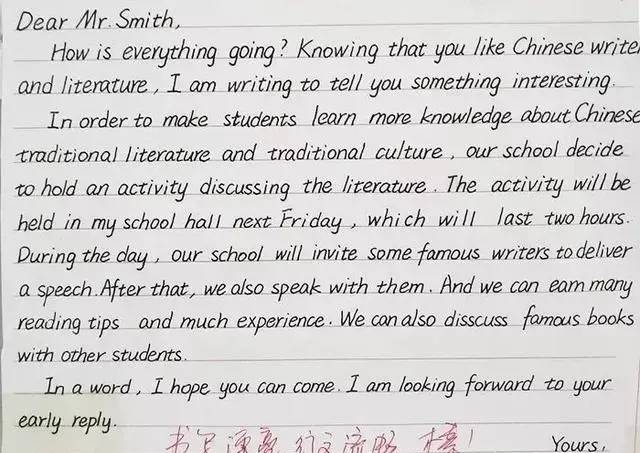 Dear Mr. Smith,
How is everything going? Knowing that you like Chinese write
and literature, I am writing to tell you something interesting.
In order to make students learn more knowledge about Chinese
traditional literature and traditional culture, our school decide
to hold an activity discussing the literature. The activity will be
held in my school hall next Friday, which will last two hours.
During the day, our school will invite some famous writers to deliver
a speech. After that, we also speak with them. And we can earn many
reading tips and much experience. We can also disscuss famous books
with other students.
In a word, I hope you can come. I am looking forward to your
early reply.
书写漂亮 行文流畅 棒!
Yours,